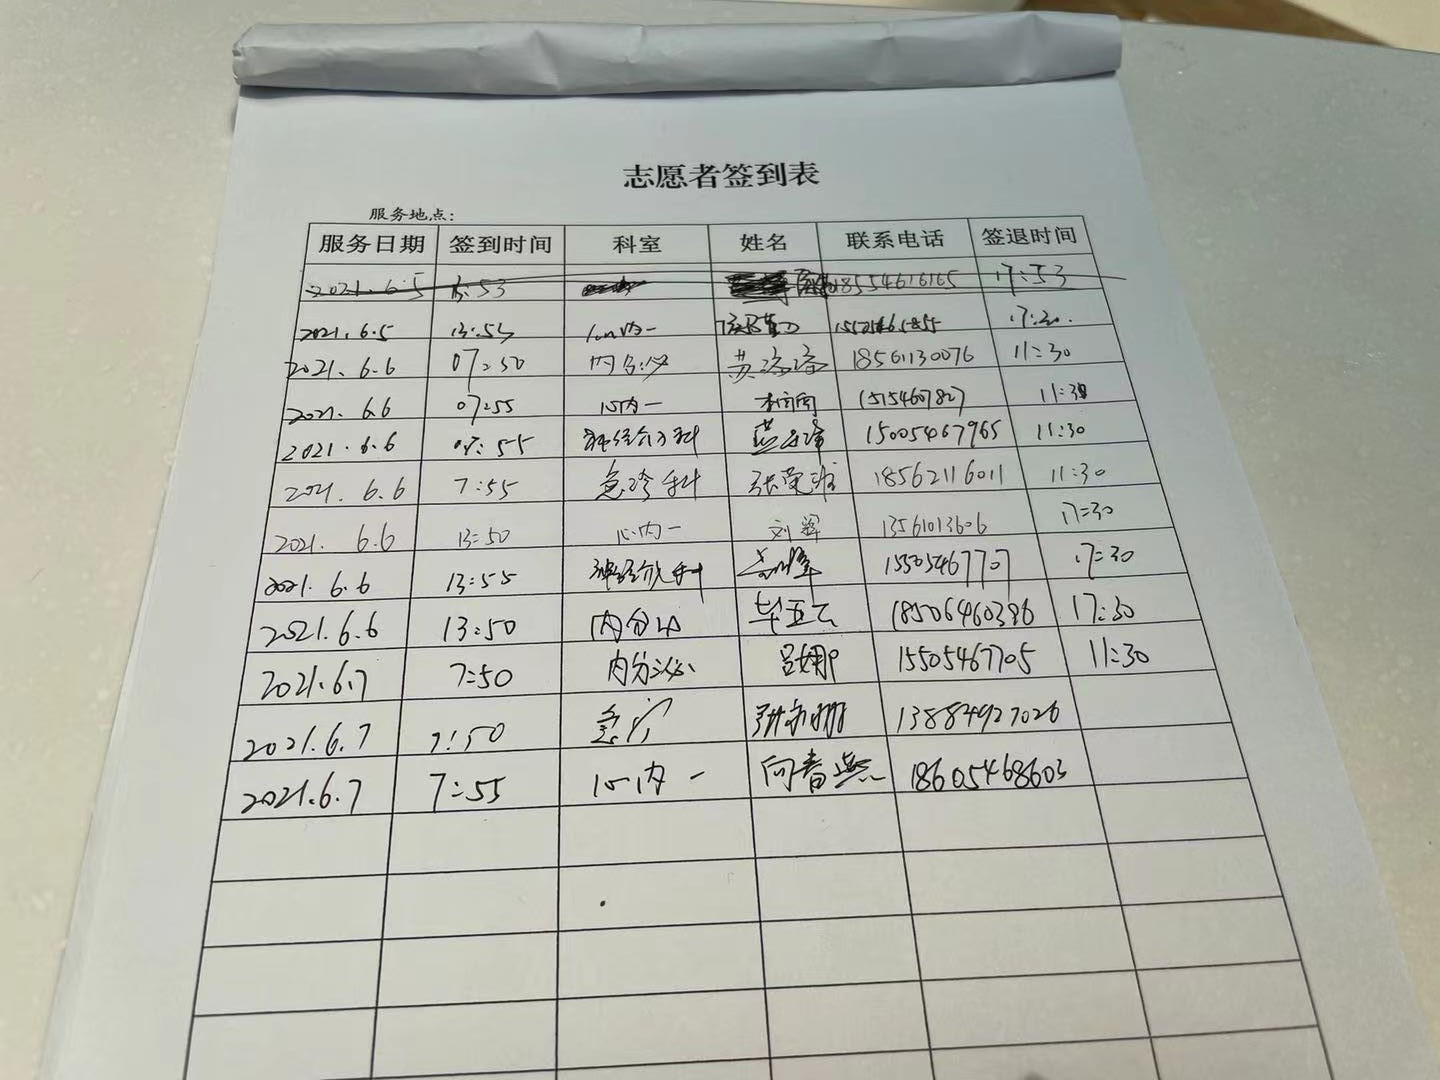 志愿者签到表
服务地点：
服务日期 签到时间 科室 姓名 联系电话 签退时间
2021.6.5 :53 18554616165 17:53
2021.6.5 13:53 心内一 17:30.
2021.6.6 07:50 内分泌 苏 18561130076 11:30
2021.6.6 07:55 心内一 15154607827 11:30
2021.6.6 07:55 神经介入科 15005467965 11:30
2021.6.6 7:55 急诊科 张 18562116011 11:30
2021.6.6 13:50 心内一 刘 13561013606 17:30
2021.6.6 13:55 神经介入科 15505467707 17:30
2021.6.6 13:50 内分泌 毕亚云 18506460386 17:30
2021.6.7 7:50 内分泌 吕娜 15505467705 11:30
2021.6.7 7:50 急诊 13884927026
2021.6.7 7:55 心内一 向春燕 18605468603